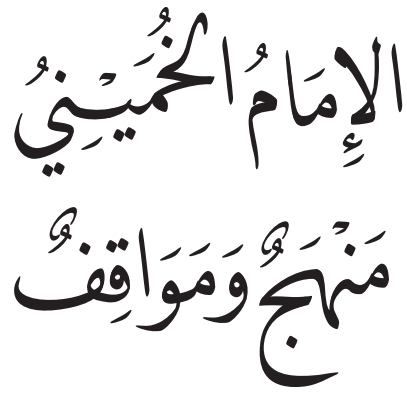 الإِمَامُ الخُمَيْنِيُ
مَنْهَجٌ وَمَوَاقِفٌ